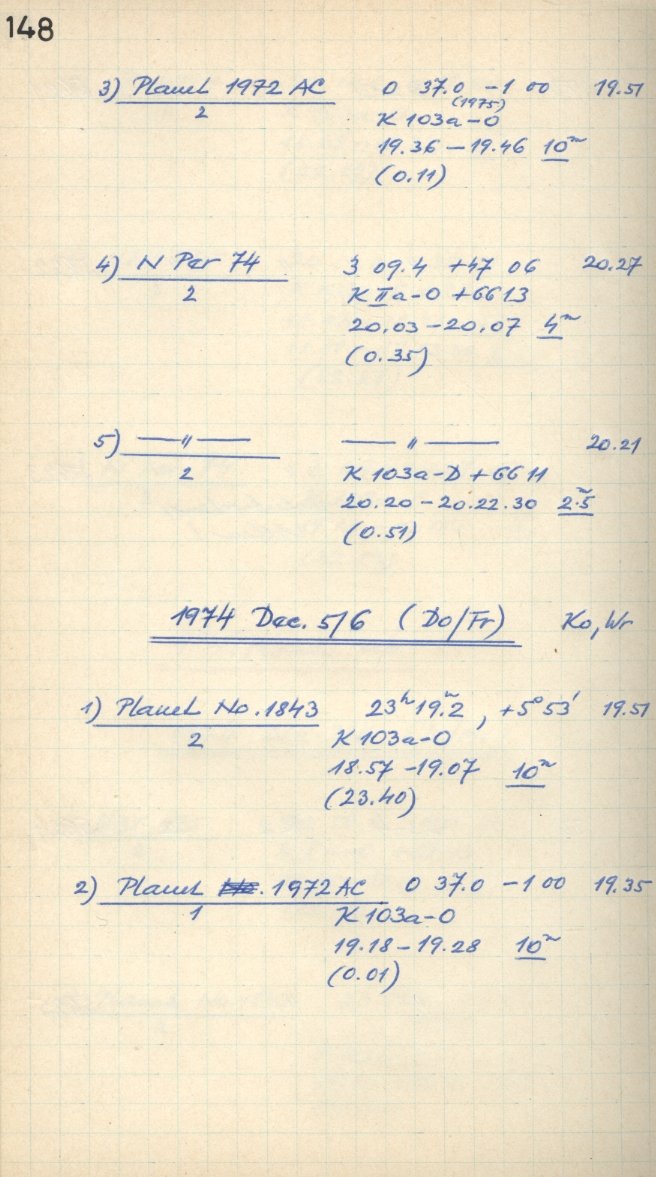 148
3) Planet 1972 AC 0 37.0 -1 00 19.51
2 (1975)
K 103a-O
19.36 - 19.46 10m
(0.11)
4) N Per 74 3 09.4 +47 06 20.27
2 K IIa-O +GG13
20.03 - 20.07 4m
(0.35)
5) —— " —— —— " —— 20.21
2 K 103a-D + GG11
20.20 - 20.22.30 2m.5
(0.51)
1974 Dec. 5/6 (Do/Fr) Ko, Wr
1) Planet No. 1843 23h 19m.2, +5° 53' 19.51
2 K 103a-O
18.57 - 19.07 10m
(23.40)
2) Planet No. 1972 AC 0 37.0 -1 00 19.35
1 K 103a-O
19.18 - 19.28 10m
(0.01)